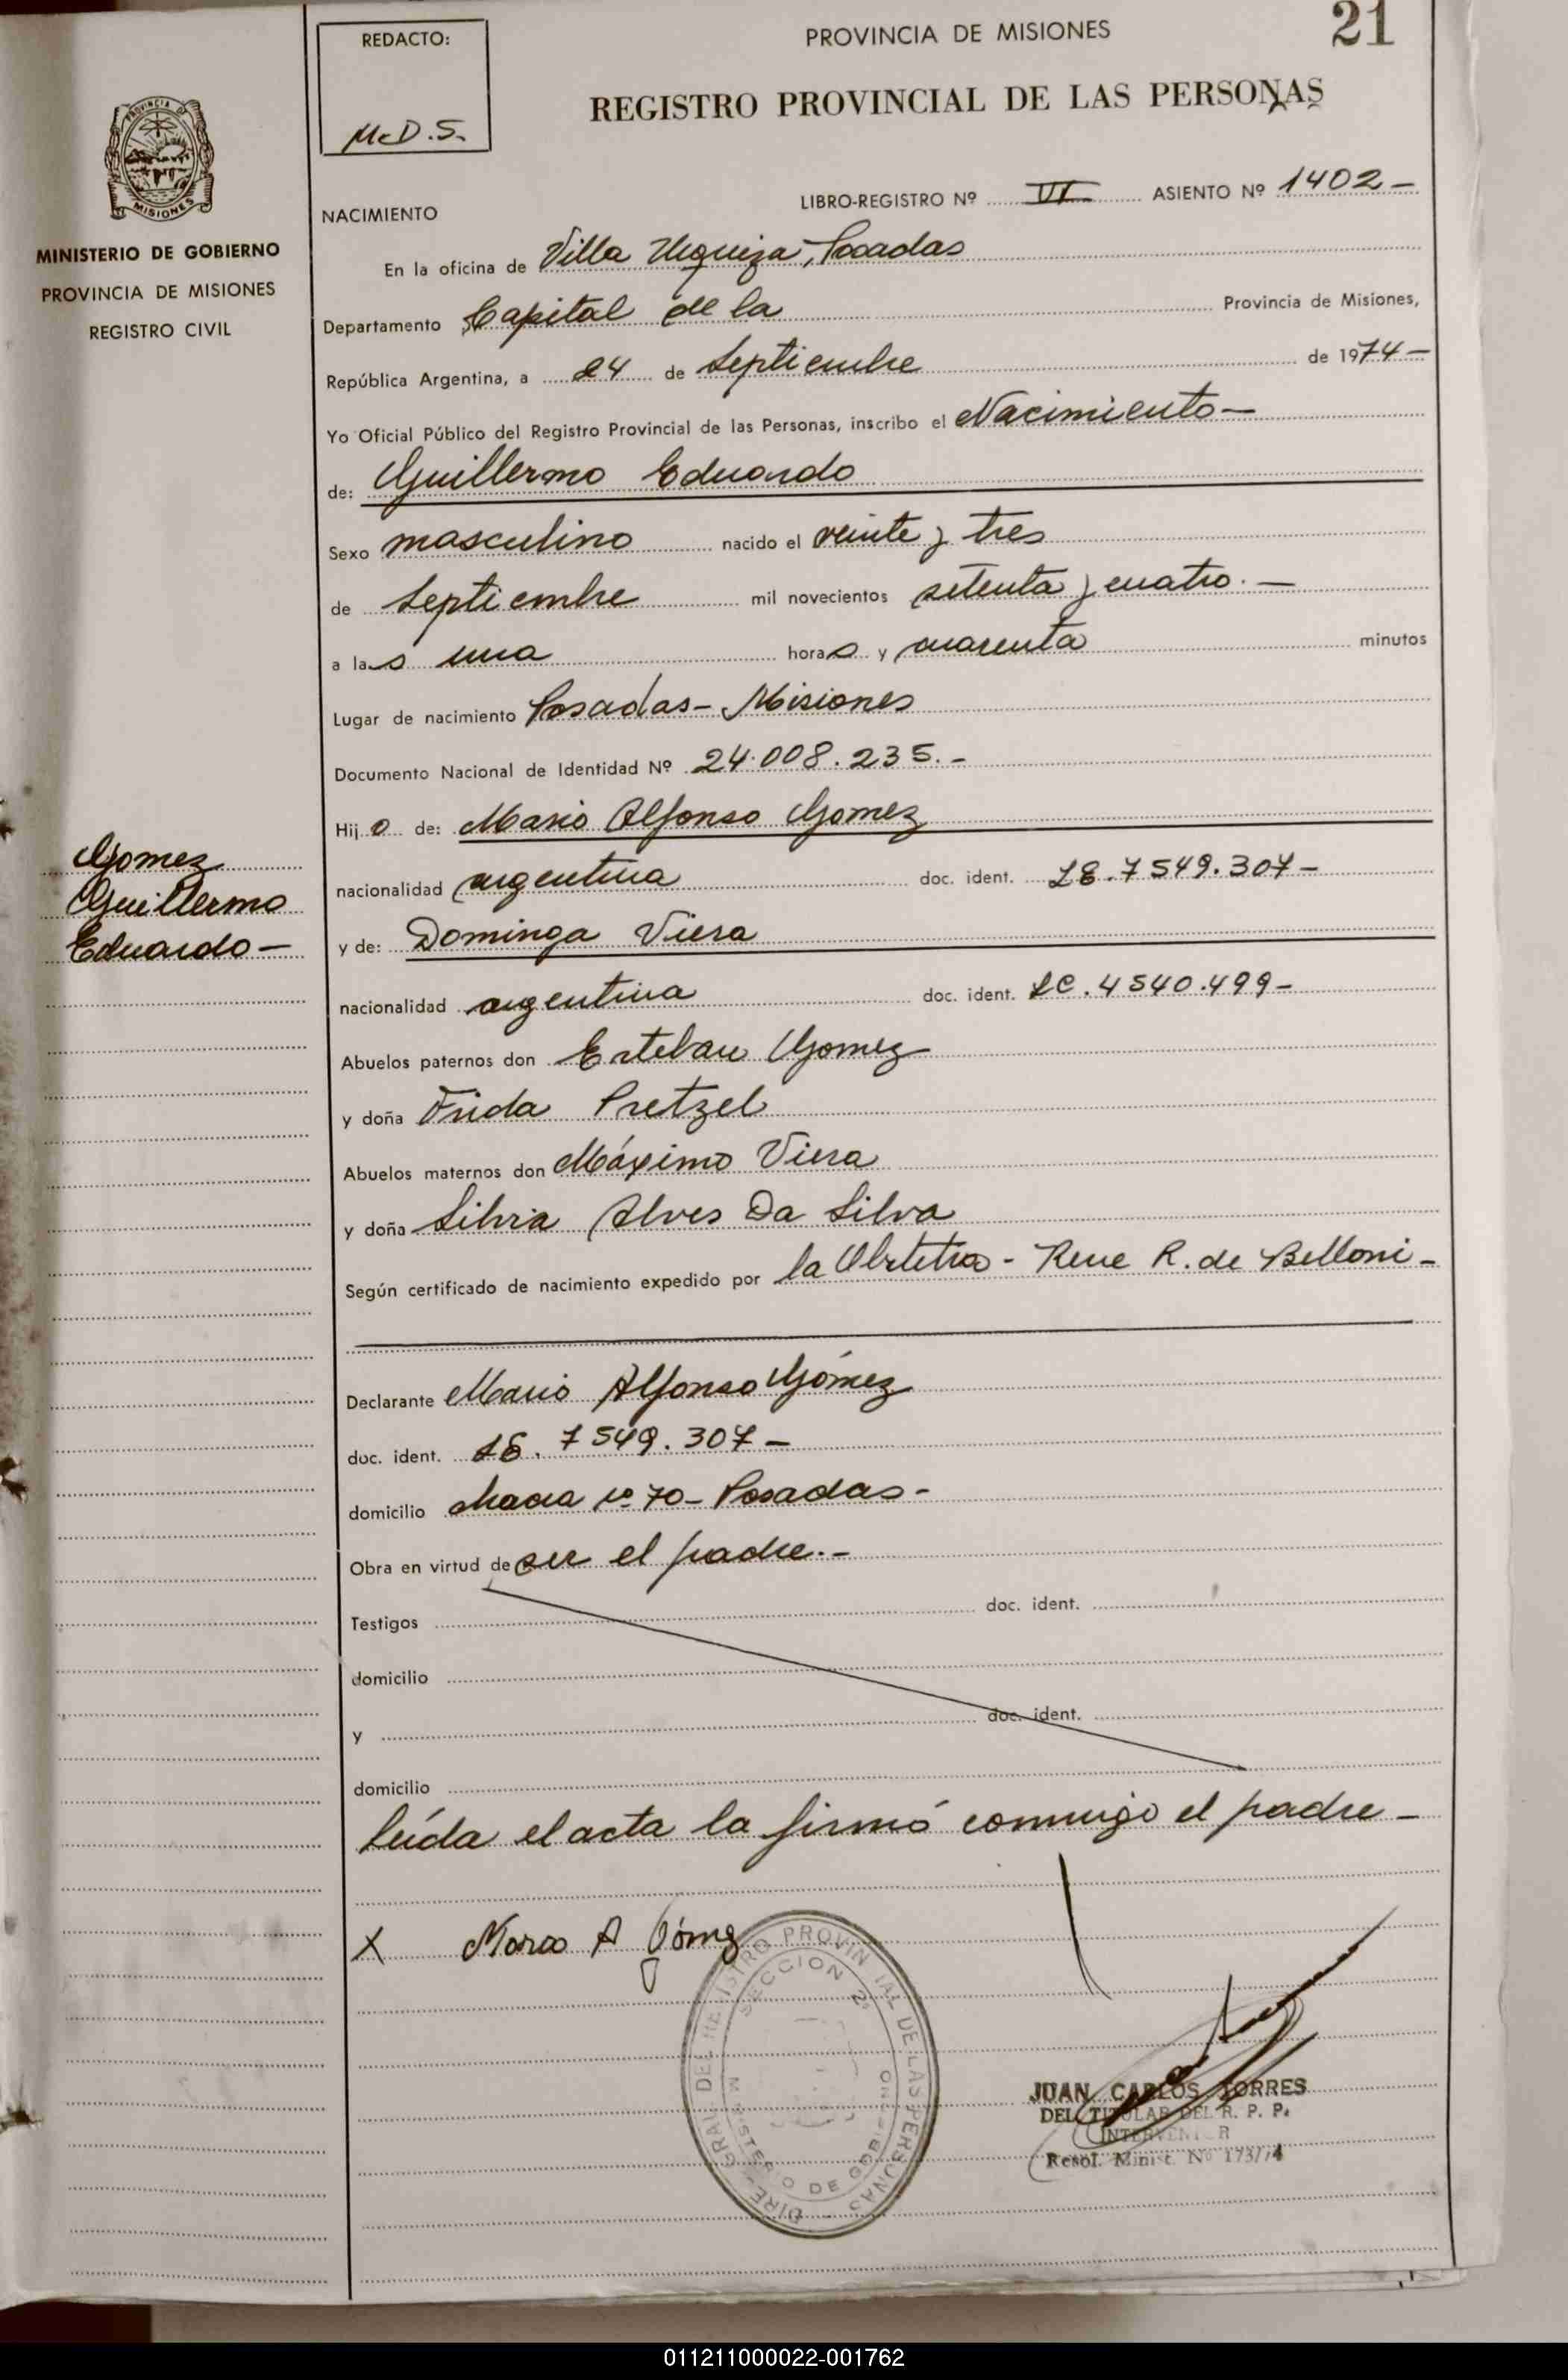 REDACTO:
M.D.S.
PROVINCIA DE MISIONES
21
REGISTRO PROVINCIAL DE LAS PERSONAS
PROVINCIA DE MISIONES
MINISTERIO DE GOBIERNO
PROVINCIA DE MISIONES
REGISTRO CIVIL
NACIMIENTO
LIBRO-REGISTRO Nº VI ASIENTO Nº 1402-
En la oficina de Villa Urquiza, Posadas
Departamento Capital de la Provincia de Misiones,
República Argentina, a 24 de Septiembre de 1974-
Yo Oficial Público del Registro Provincial de las Personas, inscribo el Nacimiento-
de: Guillermo Eduardo
Sexo masculino nacido el veinte y tres
de Septiembre mil novecientos setenta y cuatro.-
a las una horas y cuarenta minutos
Lugar de nacimiento Posadas- Misiones
Documento Nacional de Identidad Nº 24.008.235.-
Hijo de: Mario Alfonso Gomez
Gomez
Guillermo
Eduardo-
nacionalidad argentina doc. ident. LE.7549.307-
y de: Dominga Viera
nacionalidad argentina doc. ident. LC.4540.499-
Abuelos paternos don Esteban Gomez
y doña Frida Pretzel
Abuelos maternos don Máximo Viera
y doña Silvia Alves Da Silva
Según certificado de nacimiento expedido por la Obstetra - Rene R. de Belloni-
Declarante Mario Alfonso Gómez
doc. ident. LE. 7549.307-
domicilio chacra nº 70- Posadas-
Obra en virtud de ser el padre.-
Testigos doc. ident.
domicilio
y doc. ident.
domicilio
Leída el acta la firmó conmigo el padre-
X Mario A Gómez
DIRE. GRAL. DEL REGISTRO PROVINCIAL DE LAS PERSONAS
SECCION 2ª
MINISTERIO DE GOBIERNO
JUAN CARLOS TORRES
DEL TITULAR DEL R. P. P.
INTERVENTOR
Resol. Minist. Nº 173/74
011211000022-001762